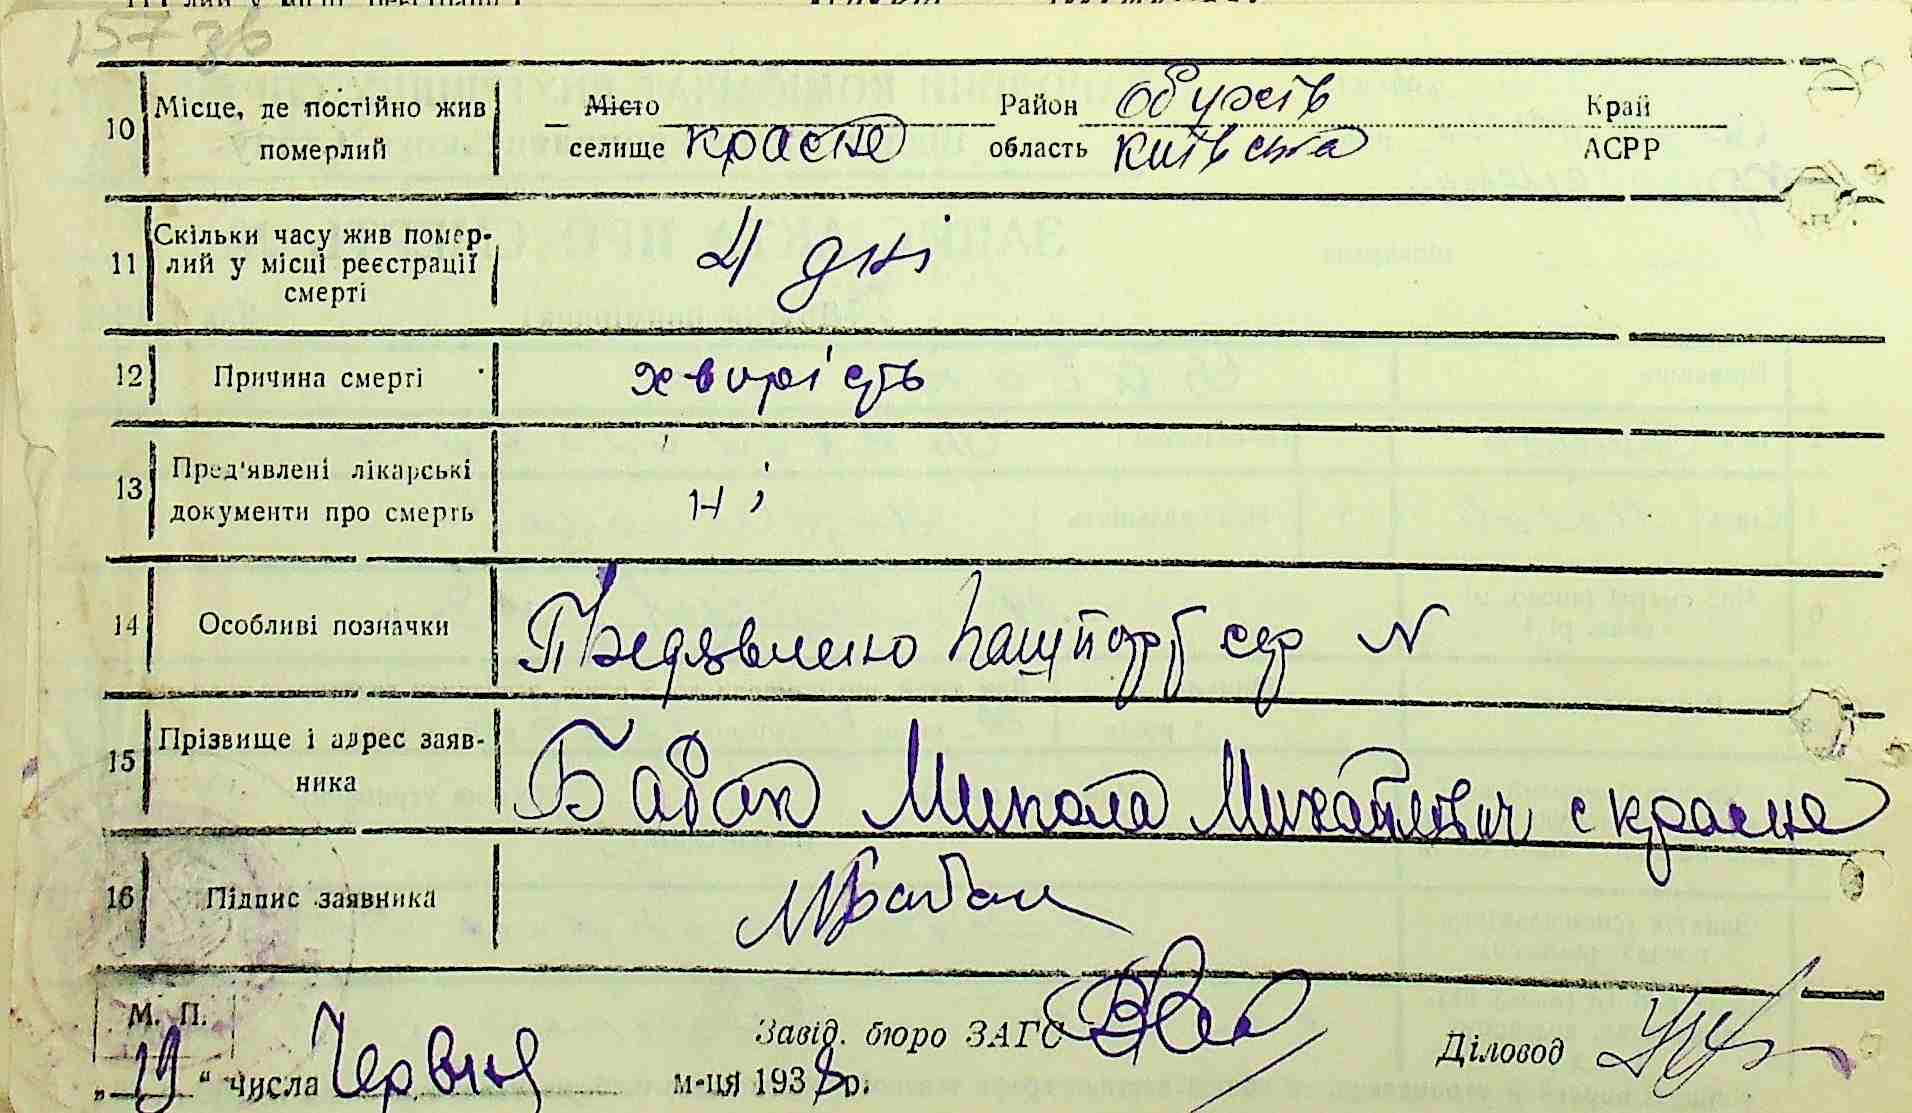 15736
10 Місце, де постійно жив Місто Район Обухів Край
померлий селище красне область київська АСРР
11 Скільки часу жив помер-
лий у місці реєстрації 4 дні
смерті
12 Причина смерті хворість
13 Пред'явлені лікарські
документи про смерть ні
14 Особливі позначки Предявлено пашпорт сер N
15 Прізвище і адрес заяв-
ника Бабак Микола Михайлович с красне
16 Підпис заявника МБабак
М. П.
Завід. бюро ЗАГС Діловод
„19“ числа Червня м-ця 1938 р.